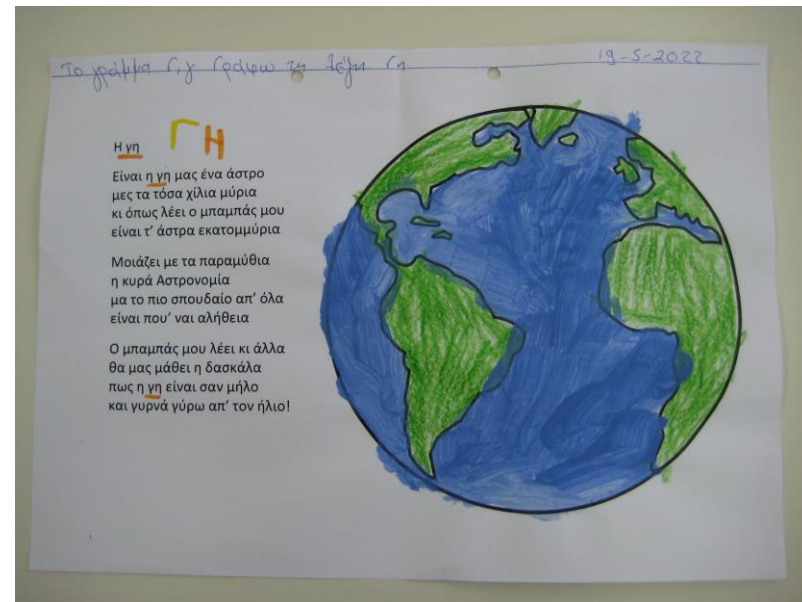 Το γράμμα Γ,γ Γράφω τη λέξη Γη
19-5-2022
Η γη
ΓΗ
Είναι η γη μας ένα άστρο
μες τα τόσα χίλια μύρια
κι όπως λέει ο μπαμπάς μου
είναι τ’ άστρα εκατομμύρια
Μοιάζει με τα παραμύθια
η κυρά Αστρονομία
μα το πιο σπουδαίο απ’ όλα
είναι που’ ναι αλήθεια
Ο μπαμπάς μου λέει κι άλλα
θα μας μάθει η δασκάλα
πως η γη είναι σαν μήλο
και γυρνά γύρω απ’ τον ήλιο!